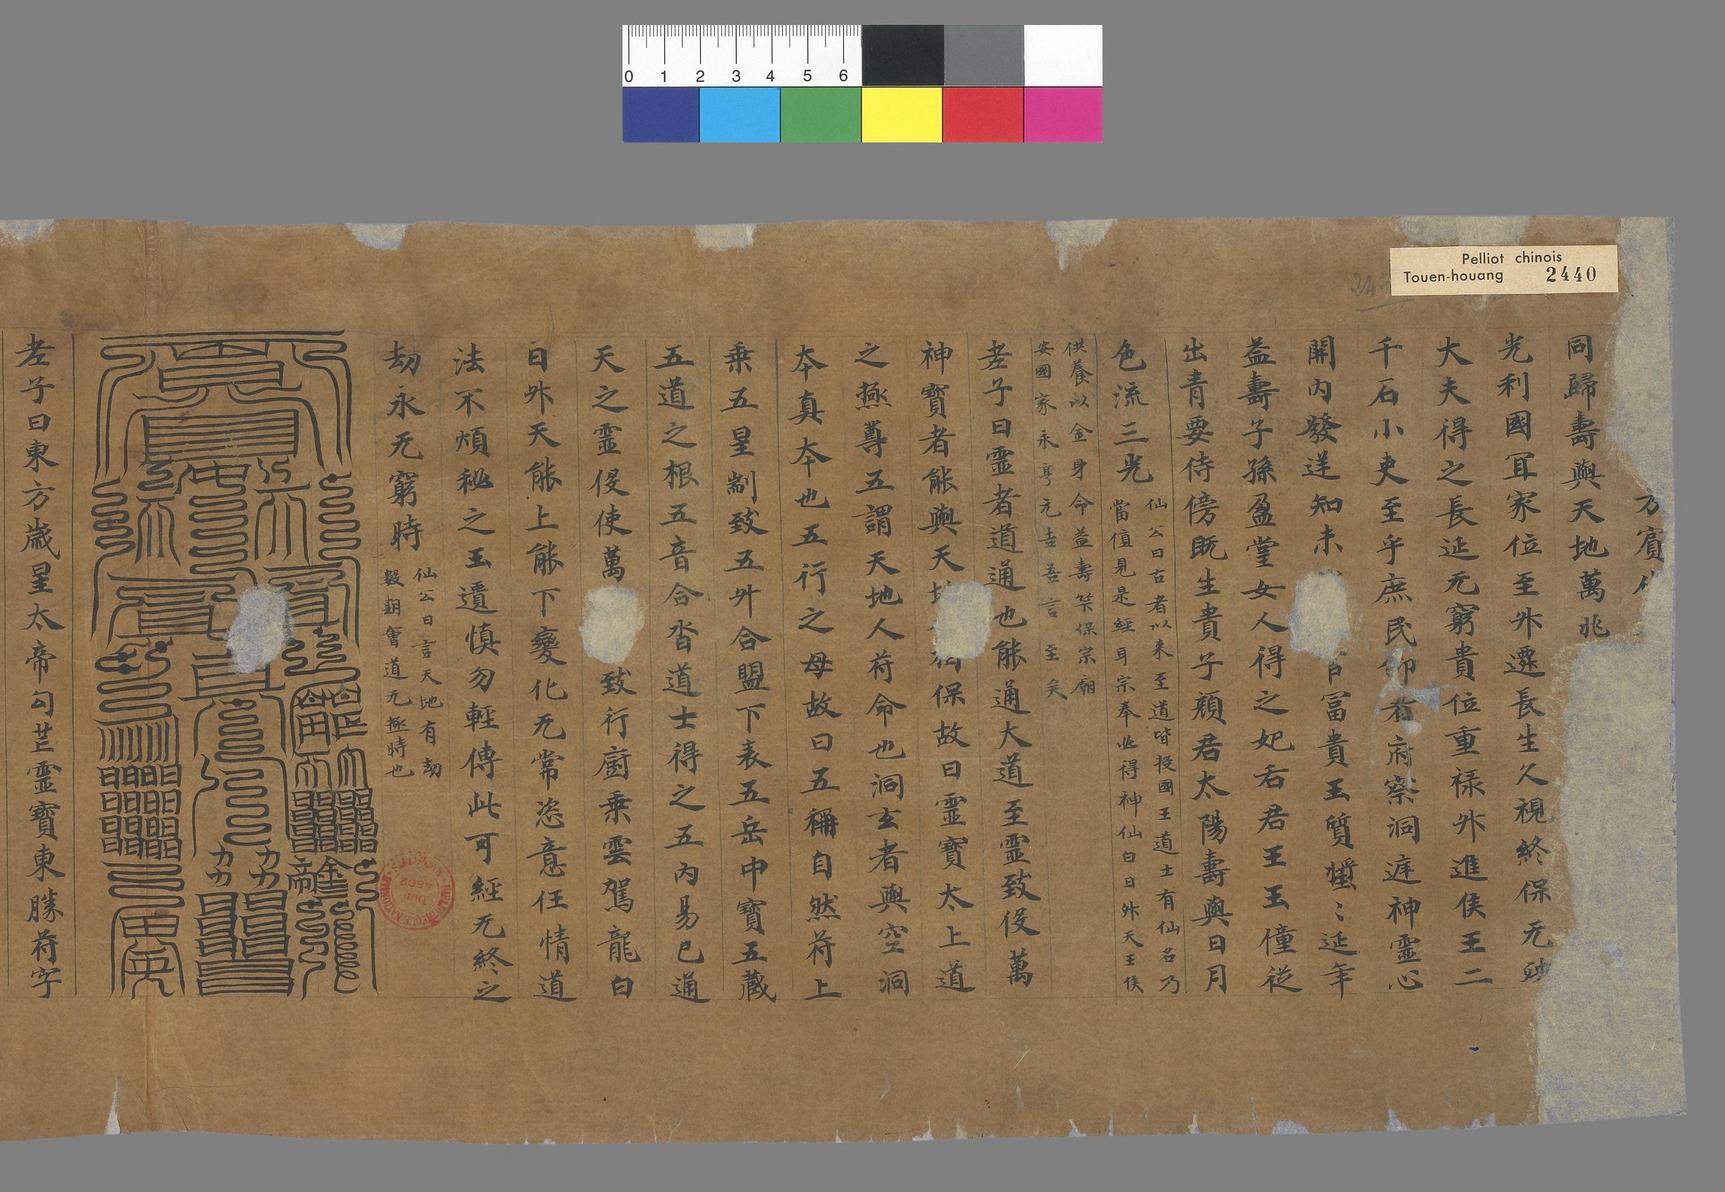 Pelliot chinois
Touen-houang 2440
0 1 2 3 4 5 6
方賓
同歸壽與天地萬兆
光利國冝家位至外遷長生久視終保无
大夫得之長延无窮貴位重禄外進侯王二
千石小吏至乎庶民仰者府察洞遅神靈心
開內發逆知未 冨貴王質㹂〻延年
益壽子孫盈堂女人得之妃后君王王僮從
出青要侍傍既生貴子顔君太陽壽與日月
色流三光
仙公曰古者以来至道皆授國王道士有仙名乃
當值見是經耳宗奉必得神仙白日外天王侯
供養以金身命益壽筭保宗廟
安國家永亨元吉吾言至矣
老子曰靈者道通也能通大道至靈致伇萬
神寶者能與天地 保故曰靈寶太上道
之極尊五謂天地人苻命也洞玄者與空洞
本真本也五行之母故曰五稱自然苻上
乗五星𠜑致五外合盟下表五岳中寶五藏
五道之根五音合沓道士得之五內易已通
天之靈伇使萬 致行廚乗雲駕龍白
日外天能上能下變化无常恣意任情道
法不煩秘之玉遺慎勿輕傳此可經无終之
劫永无窮時
仙公曰言天地有劫
數朝會道无極時也
老子曰東方歳星太帝勾芒靈寶東勝苻字